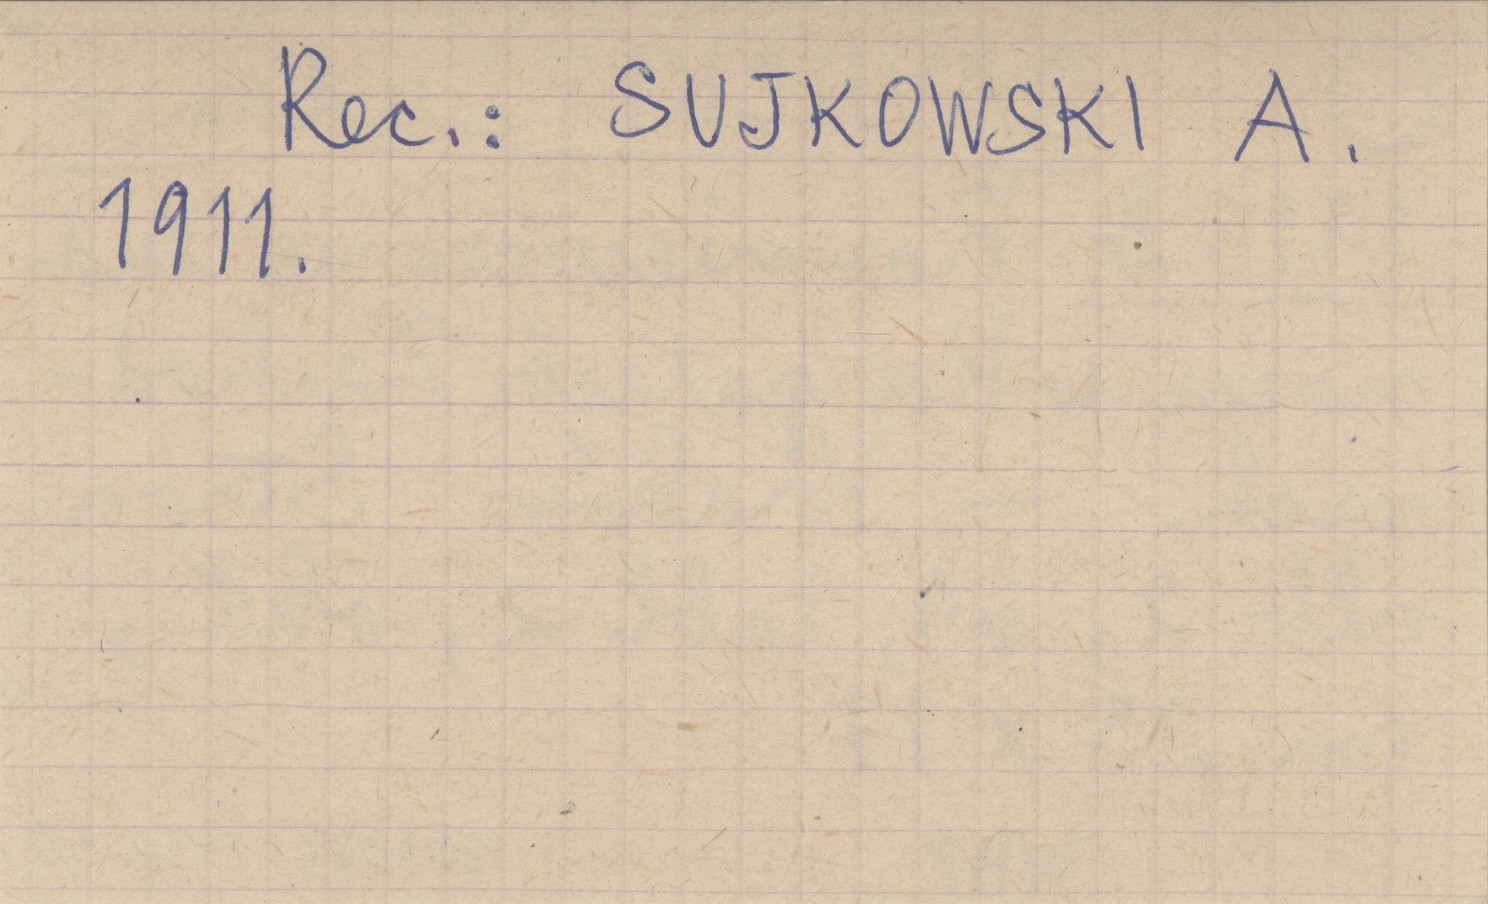 Rec.: SUJKOWSKI A.
1911.